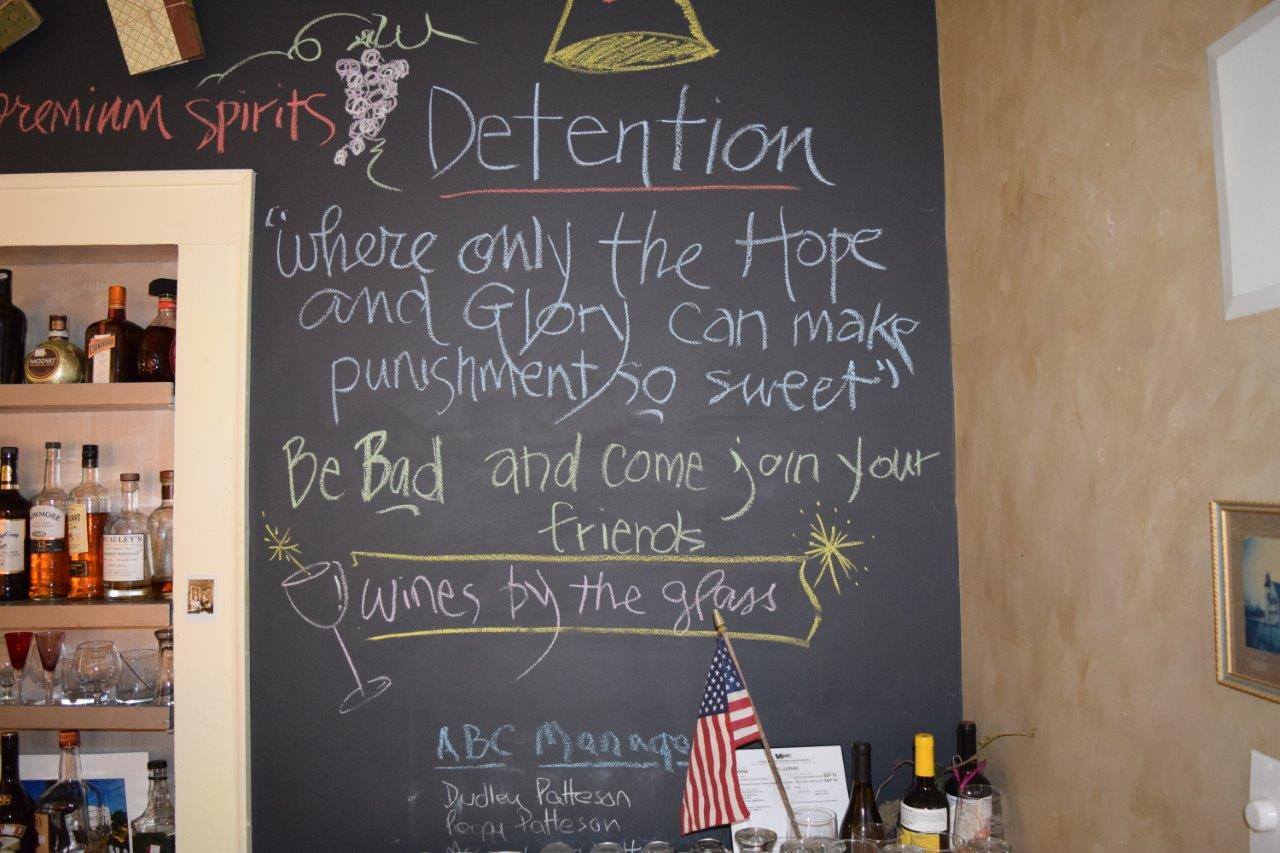 premium spirits
Detention
"where only the Hope
and Glory can make
punishment so sweet"
Be Bad and come join your
friends
wines by the glass
ABC
Dudley Patteson
Peggy Patteson
MOZART